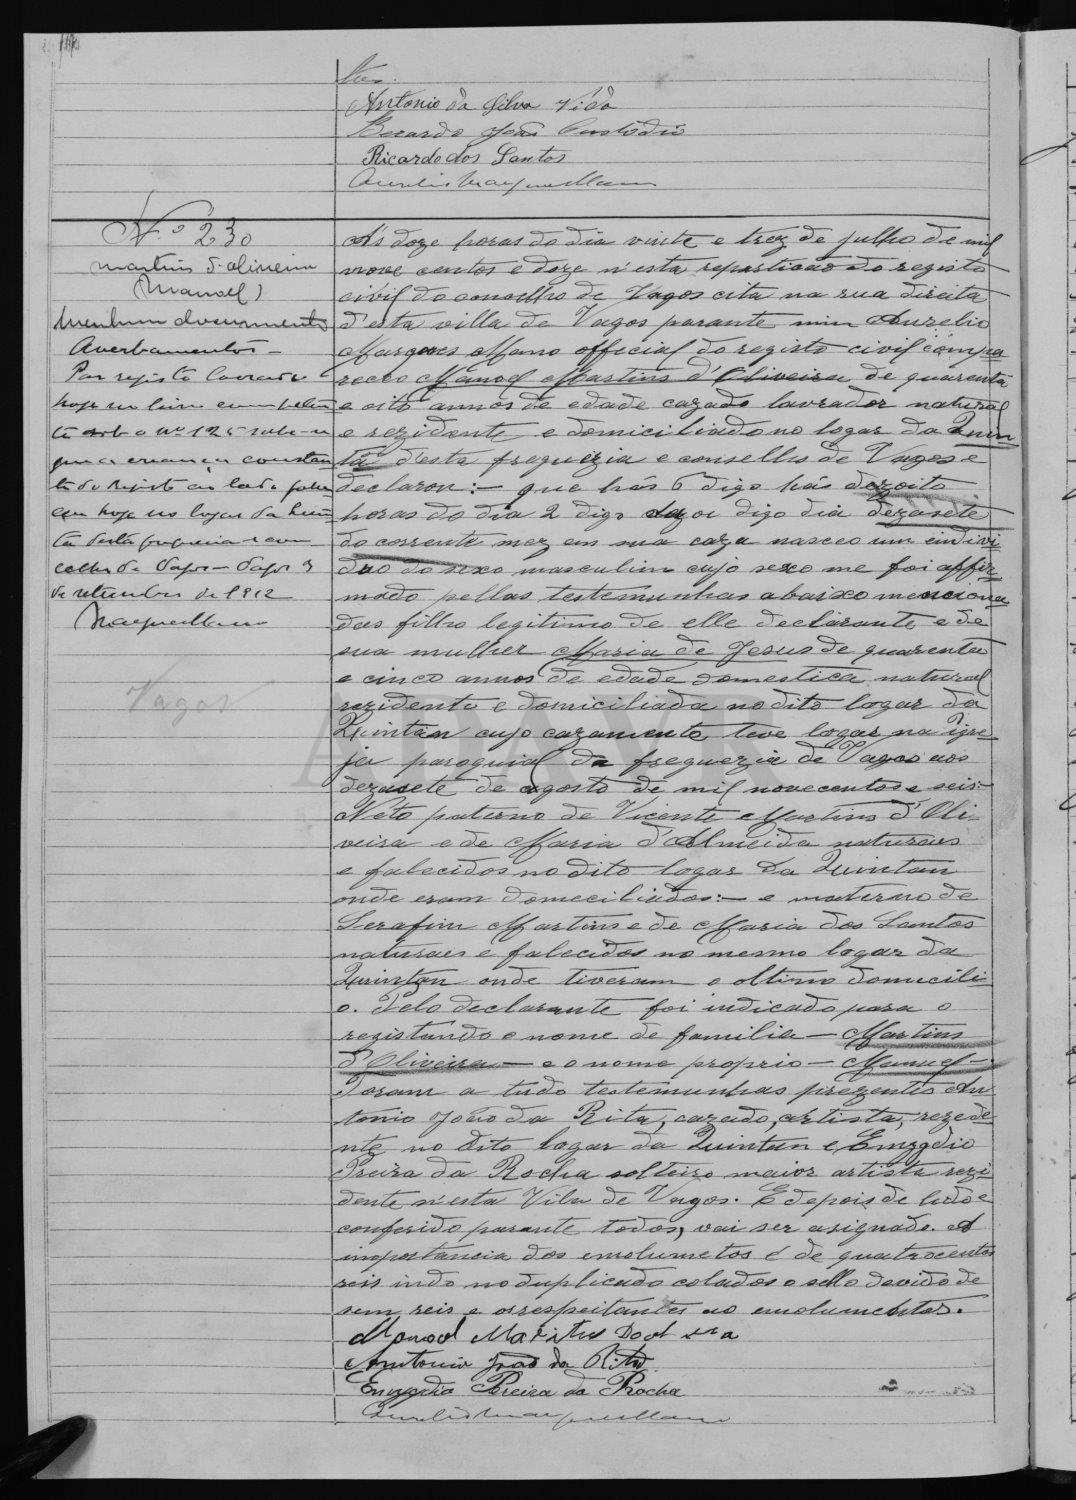 Antonio da Silva Vida
João Custodio
Ricardo dos Santos
Aurelio Marques Mano
N.º 230
Martins d'oliveira
(Manoel)
Nenhum documento
Averbamentos -
Por registo lavrado
hoje no livro competen
te sob o nº 125 sabe-se
que a criança constan
te do registo ao lado falec
eu hoje no logar da Quin
tã desta freguesia e con
celho de Vagos - Vagos 3
de setembro de 1912
Marques Mano
Vagos
Ás doze horas do dia vinte e trez de julho de mil
nove centos e doze n'esta repartição do registo
civil do conselho de Vagos cita na rua direita
d'esta villa de Vagos parante mim Aurelio
Marques Mano official do registo civil compa
receo Manoel Martins d'Oliveira de quarenta
e oito annos de edade cazado lavrador natural
e rezidente e domiciliado no logar da Quin
tã d'esta freguezia e conselho de Vagos e
declarou:- que hás 6 digo hás dezoito
horas do dia 2 digo doze digo dia dezasete
do corrente mez em sua caza nasceo um endivi
duo do sexo masculino cujo sexo me foi affir
mado pellas testemunhas abaixo menciona
das filho legitimo de elle declarante e de
sua mulher Maria de Jesus de quarenta
e cinco annos de edade domestica natural
rezidente e domiciliada no dito logar da
Quintan cujo cazamento teve logar na Igre
ja paroquial da freguezia de Vagos aos
dezasete de agosto de mil novecentos e seis
Neto paterno de Vicente Martins d'Oli
veira e de Maria d'Almeida naturaes
e falecidos no dito logar da Quintan
onde eram domeciliados:- e materno de
Serafim Martins e de Maria dos Santos
naturaes e falecidos no mesmo logar da
Quintan onde tiveram o oltimo domicili
o. Pelo declarante foi indicado para o
registando o nome de familia - Martins
d'Oliveira - e o nome proprio - Manuel -
Foram a tudo testemunhas prezentes An
tonio João da Rita, cazado, artista, rezede
nte no dito logar da Quintan e Emygdio
Preira da Rocha solteiro maior artista rezi
dente n'esta Vila de Vagos. E depois de lido e
conferido parante todos, vai ser asignado. A
importancia dos emolumetos é de quatrocentos
reis indo no duplicado colados o sello devido de
sem reis e os respeitantes ao emolumentos.
Manoel Martins
Antonio João da Rita
Emygdio Pereira da Rocha
Aurelio Marques Mano
ADAVR